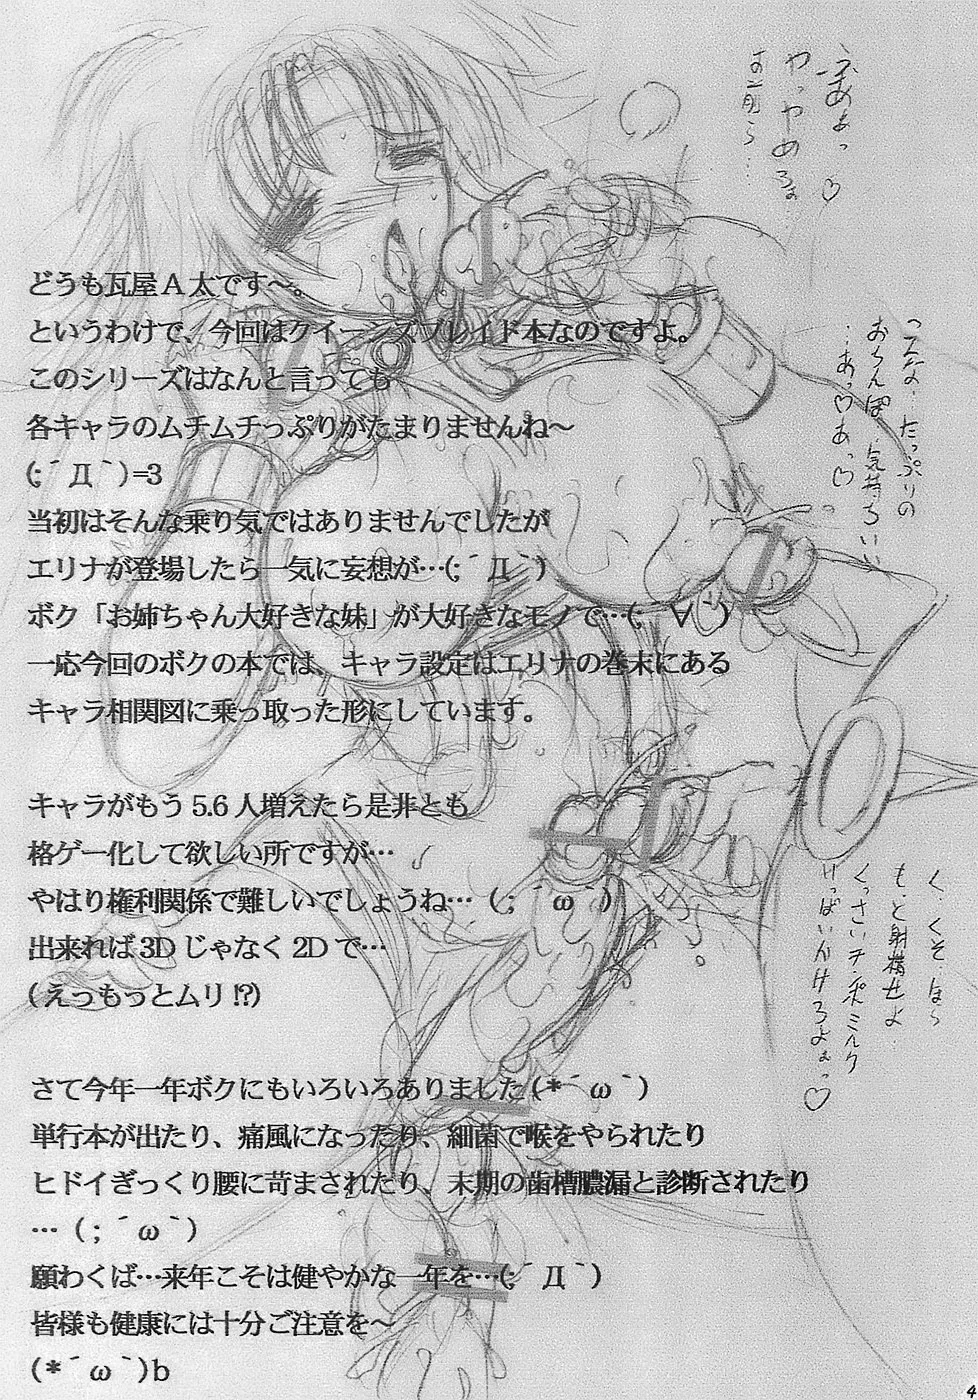 どうも瓦屋A太です～。
というわけで、今回はクイーンズブレイド本なのですよ。
このシリーズはなんと言っても
各キャラのムチムチっぷりがたまりませんね～
(;´Д｀)=3
当初はそんな乗り気ではありませんでしたが
エリナが登場したら一気に妄想が…(;´Д｀)
ボク「お姉ちゃん大好きな妹」が大好きなモノで…(;´∀｀)
一応今回のボクの本では、キャラ設定はエリナの巻末にある
キャラ相関図に乗っ取った形にしています。
キャラがもう5.6人増えたら是非とも
格ゲー化して欲しい所ですが…
やはり権利関係で難しいでしょうね…(;´ω｀)
出来れば3Dじゃなく2Dで…
(えっもっとムリ!?)
さて今年一年ボクにもいろいろありました(*´ω｀)
単行本が出たり、痛風になったり、細菌で喉をやられたり
ヒドイぎっくり腰に苛まされたり、末期の歯槽膿漏と診断されたり
…(;´ω｀)
願わくば…来年こそは健やかな一年を…(;´Д｀)
皆様も健康には十分ご注意を～
(*´ω｀)b
やっやめろぉ
こんな、たっぷりの
おちんぽ、気持ちいい
…あっ♡あっ♡
く、くそ、ほら
もっと射精せよ
くっさいチンポミルク
いっぱいかけろよぉっ♡
4